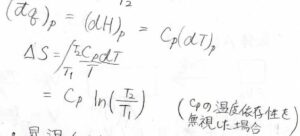 (đq)ₚ = (dH)ₚ = Cₚ(dT)ₚ
ΔS = ∫_{T₁}^{T₂} CₚdT/T
= Cₚ ln(T₂/T₁) (Cₚの温度依存性を
無視した場合)